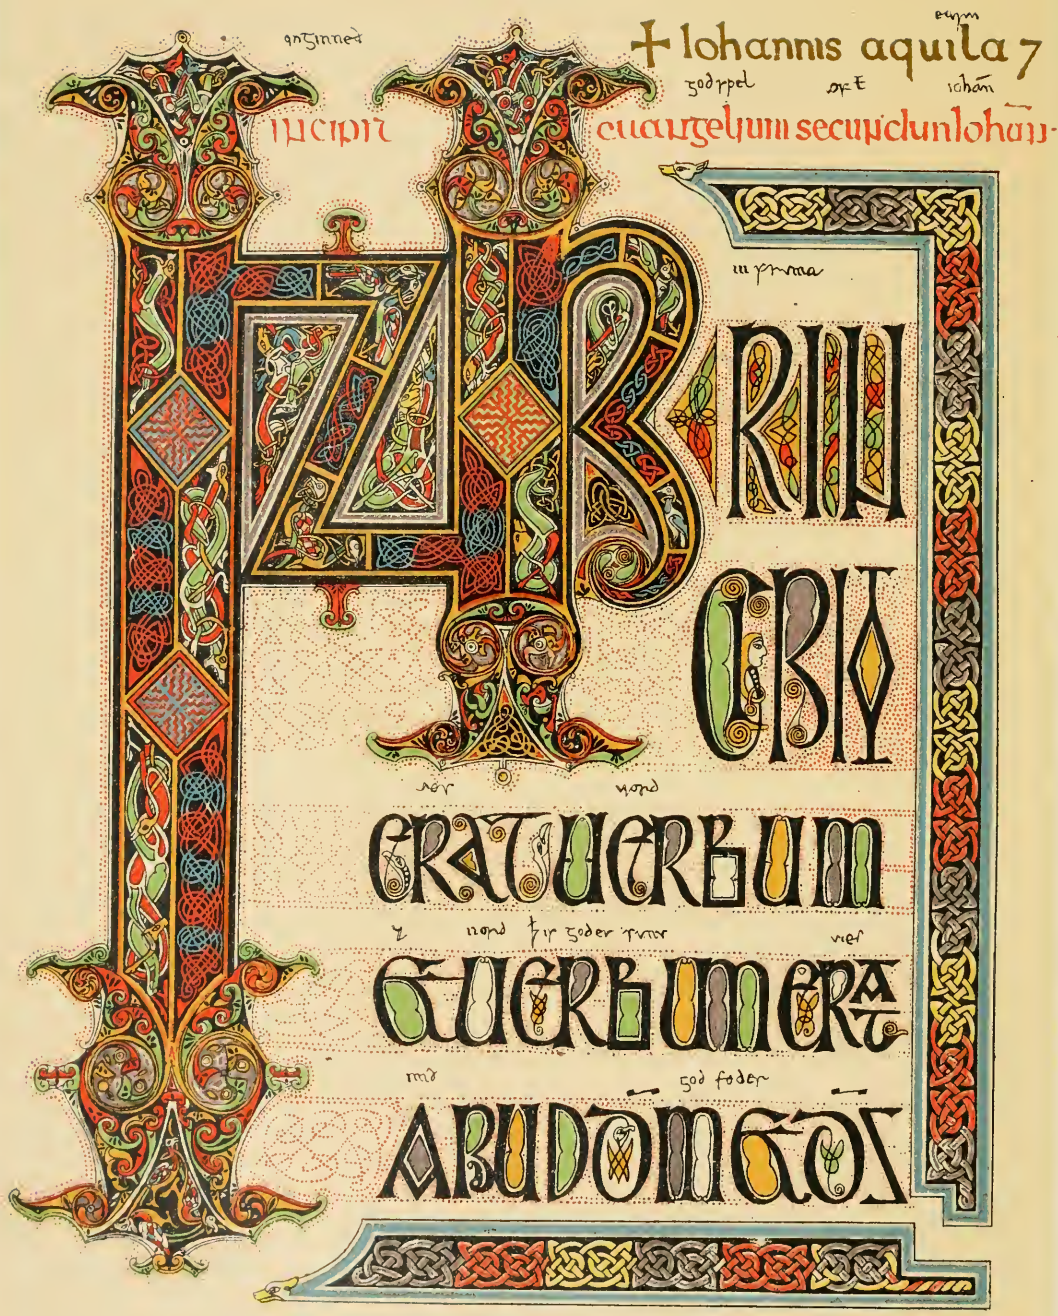 onginneð
+ Iohannis aquila 7
godspel æft iohan̄
incipit euangelium secundum Iohan̄
in fruma
INPRIN
CIPIO
wæs word
ERAT UERBUM
7 word þ is godes sunu wæs
ET UERBUM ERAT
mið god fæder
APUD DM̄ ET DS̄